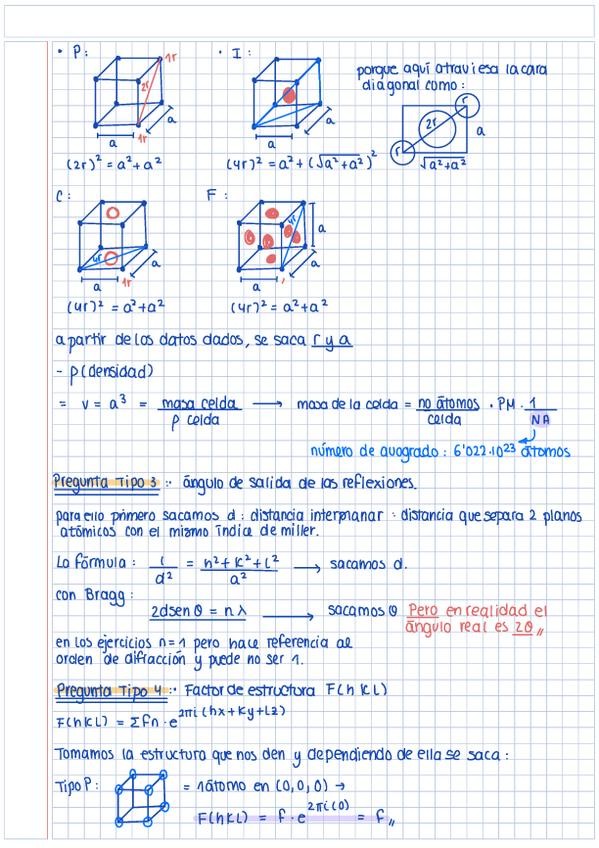 • P:
1r
2r
a
a
1r
(2r)² = a² + a²
• I:
a
a
(4r)² = a² + (√a² + a²)²
porque aquí atraviesa la cara
diagonal como:
r
2r
r
a
√a² + a²
C:
4r
a
a
1r
(4r)² = a² + a²
F:
4r
a
a
a
(4r)² = a² + a²
a partir de los datos dados, se saca r y a
- ρ(densidad)
= v = a³ = masa celda / ρ celda → masa de la celda = no átomos / celda · PM · 1 / NA
número de avogrado : 6'022·10²³ átomos
Pregunta Tipo 3 :· ángulo de salida de las reflexiones.
para ello primero sacamos d : distancia interplanar : distancia que separa 2 planos
atómicos con el mismo índice de miller.
La fórmula : 1 / d² = h² + k² + l² / a² → sacamos d.
con Bragg :
2dsen θ = n λ → sacamos θ Pero en realidad el
ángulo real es 2θ,,
en los ejercicios n=1 pero hace referencia al
orden de difracción y puede no ser 1.
Pregunta Tipo 4 :· Factor de estructura F(h K L)
F(h K L) = Σ fn · e^2πi (hx + Ky + Lz)
Tomamos la estructura que nos den y dependiendo de ella se saca :
Tipo P : = 1 átomo en (0,0,0) →
F(h K L) = f · e^2πi(0) = f,,